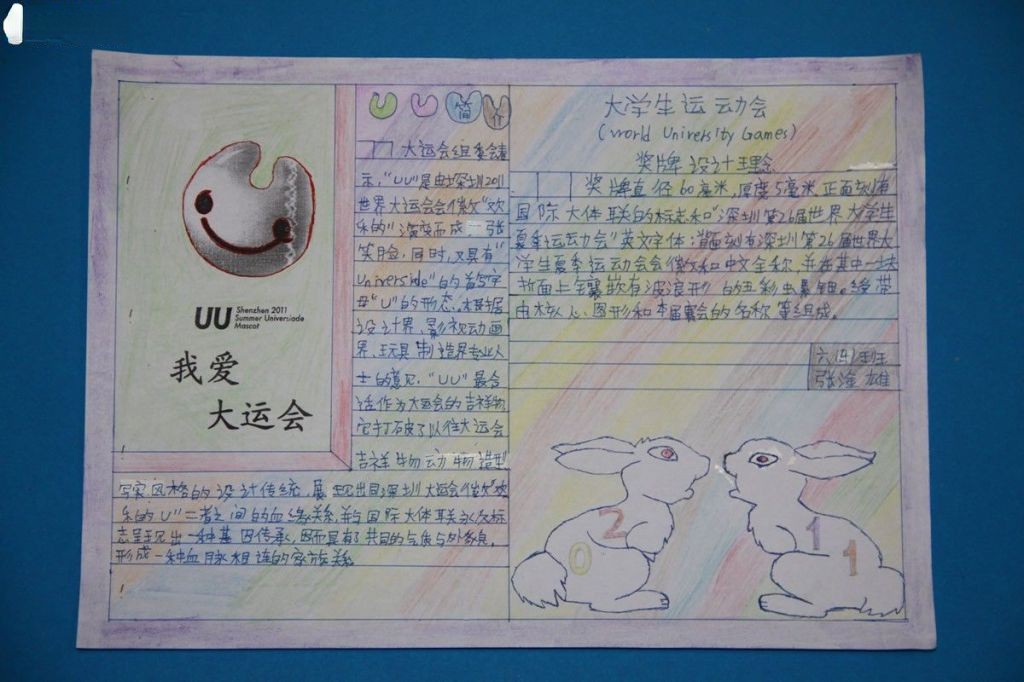 UU
Shenzhen 2011
Summer Universiade
Mascot
我爱
大运会
UU简介
大运会组委会表
示，“UU”是由深圳2011
世界大运会会徽“欢
乐的U”演变而成 一张
笑脸，同时，又具有“
Universide”的首写字
母“U”的形态。根据
设计界、影视动画
界、玩具制造界专业人
士的意见，“UU”最合
适作为大运会的吉祥物
它打破了以往大运会
吉祥物动物造型
写实风格的设计传统，展现出目深圳大运会会徽“欢
乐的U”二者之间的血缘关系，并与国际大体联永久标
志呈现出一种基因传承，因而具有了共同的气质与外在息，
形成一种血脉相连的家族关系
大学生运动会
(World University Games)
奖牌设计理念
奖牌直径60毫米，厚度5毫米，正面刻有
国际大体联的标志和“深圳第26届世界大学生
夏季运动会”英文字体；背面刻有深圳第26届世界大
学生夏季运动会会徽和中文全称，并在其中一块
背面上镶嵌有波浪形的五彩
绶带
由核心图形和本届赛会的名称等组成。
六（四）班
张淦雄
20
11